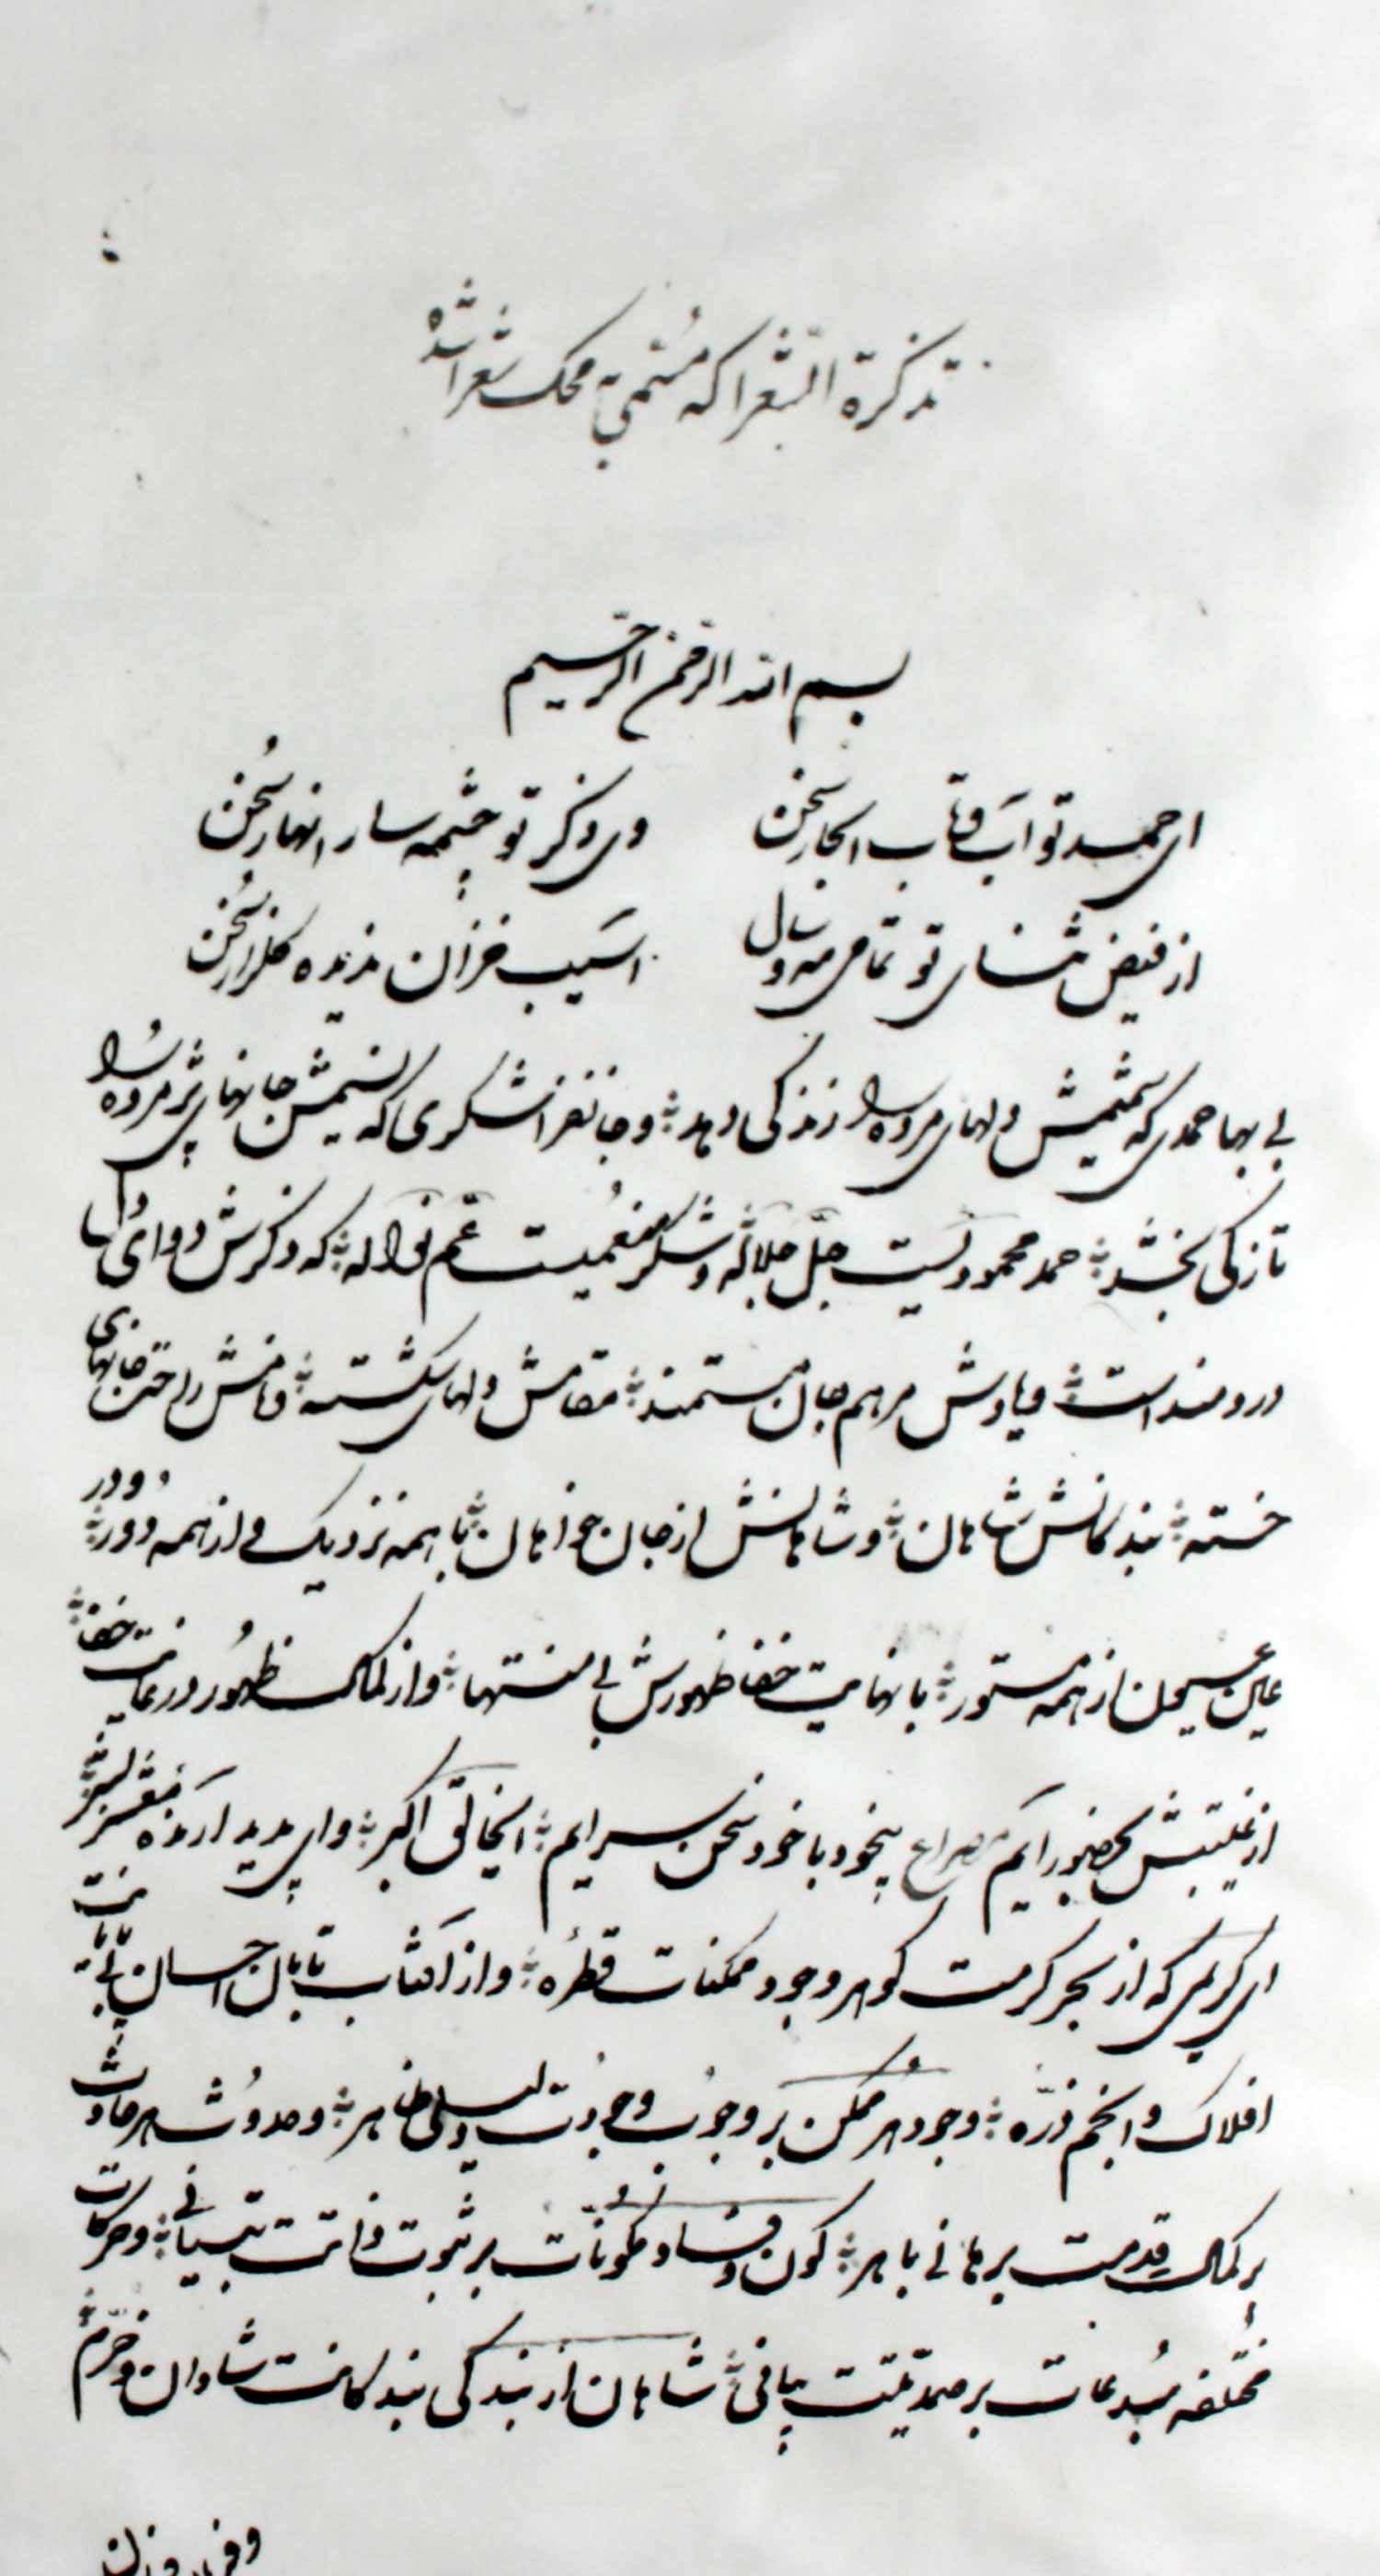 تذکرة الشعرا که مسمی به محک شعرا شده
بسم الله الرحمن الرحیم
ای حمد تو آب و تاب ابحار سخن وی ذکر تو چشمه سار انهار سخن
از فیض ثنای تو تمامی مه و سال آسیب خزان ندیده گلزار سخن
بی بها حمدی که شمیمش دلهای مرده را زندگی دهد و جانفزا شکری که نسیمش جانهای پژمرده را
تازگی بخشد حمد محمودیست جل جلاله و شکر منعمیست عم نواله که ذکرش دوای دلهای
دردمند است و یادش مرهم جان مستمند مقامش دلهای شکسته و نامش راحت جانهای
خسته بندگانش شاهان و شاهانش از جان خواهان با همه نزدیک و از همه دور و در
عین عیان از همه مستور با نهایت خفا ظهورش بی منتها و از کمال ظهور در غایت خفا
از غیبتش بحضور آیم مصراع بیخود با خود سخن سرایم ای خالق اکبر و ای پدید آرنده نفع و شر
ای کریمی که از بحر کرمت گوهر وجود ممکنات قطره و از آفتاب تابان احسان بی نهایتت
افلاک و انجم ذره وجود هر ممکن بر وجوب وجودت دلیلی ظاهر و حدوث هر حادث
بر کمال قدمت برهانی باهر کون و فساد مکونات بر ثبوت ذاتت تبیانی و حرکات
مختلفه مبدعات بر صمدیتت بیانی شاهان از بندگی بندگانت شادان و خرم